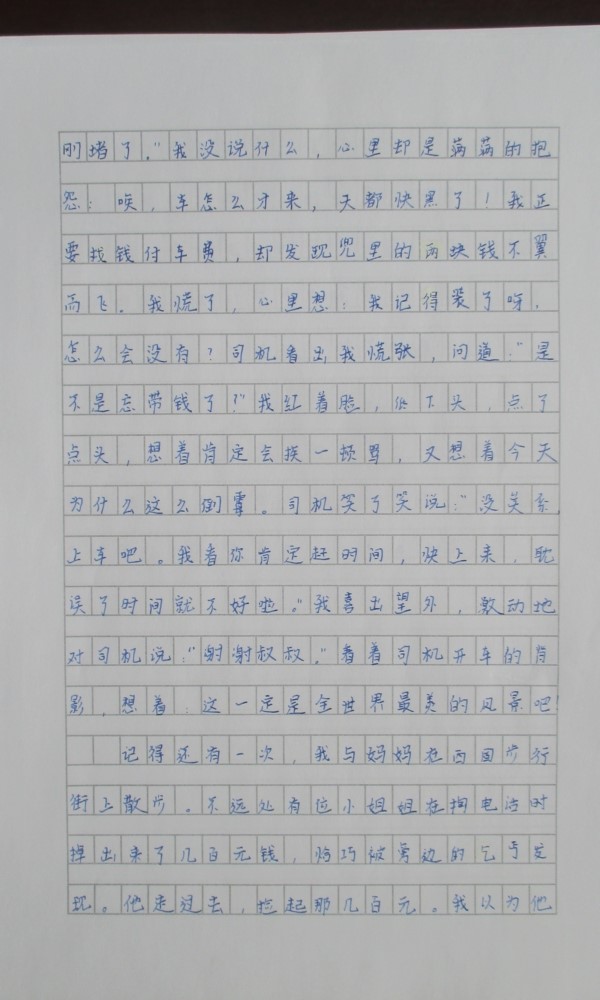 刚堵了。"我没说什么，心里却是满满的抱
怨：唉，车怎么才来，天都快黑了！我正
要找钱付车费，却发现兜里的两块钱不翼
而飞。我慌了，心里想：我记得装了呀，
怎么会没有？司机看出我慌张，问道："是
不是忘带钱了？"我红着脸，低下头，点了
点头，想着肯定会挨一顿骂，又想着今天
为什么这么倒霉。司机笑了笑说："没关系，
上车吧。我看你肯定赶时间，快上来，耽
误了时间就不好啦。"我喜出望外，激动地
对司机说："谢谢叔叔。"看着司机开车的背
影，想着：这一定是全世界最美的风景吧！
记得还有一次，我与妈妈在西园步行
街上散步。不远处有位小姐姐在掏电话时
掉出来了几百元钱，恰巧被旁边的乞丐发
现。他走过去，捡起那几百元。我以为他